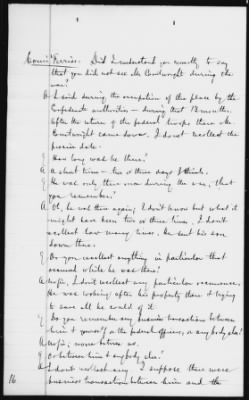 Comr Ferriss. Did I understand you correctly to say
that you did not see Mr Courtwright during the
war?
A I said during the occupation of this place by the
Confederate authorities – during that 18 months.
After the return of the federal troops there Mr
Courtwright came down. I do not recollect the
precise date.
Q How long was he there?
A A short time – two or three days I think.
Q He was only there once during the war, that
you remember?
A Oh, he was there again; I don't know but what it
might have been two or three times, I don't
recollect how many times. He sent his son
down there.
Q Do you recollect anything in particular that
occurred while he was there?
A No sir, I don't recollect any particular occurrence,
He was looking after his property there & trying
to save all he could of it.
Q Do you remember any business transactions between
him & yourself or the federal officers, or anybody else?
A No sir; none between us.
Q Or between him & anybody else?
A I do not recollect any. I suppose there were
business transactions between him and the
16